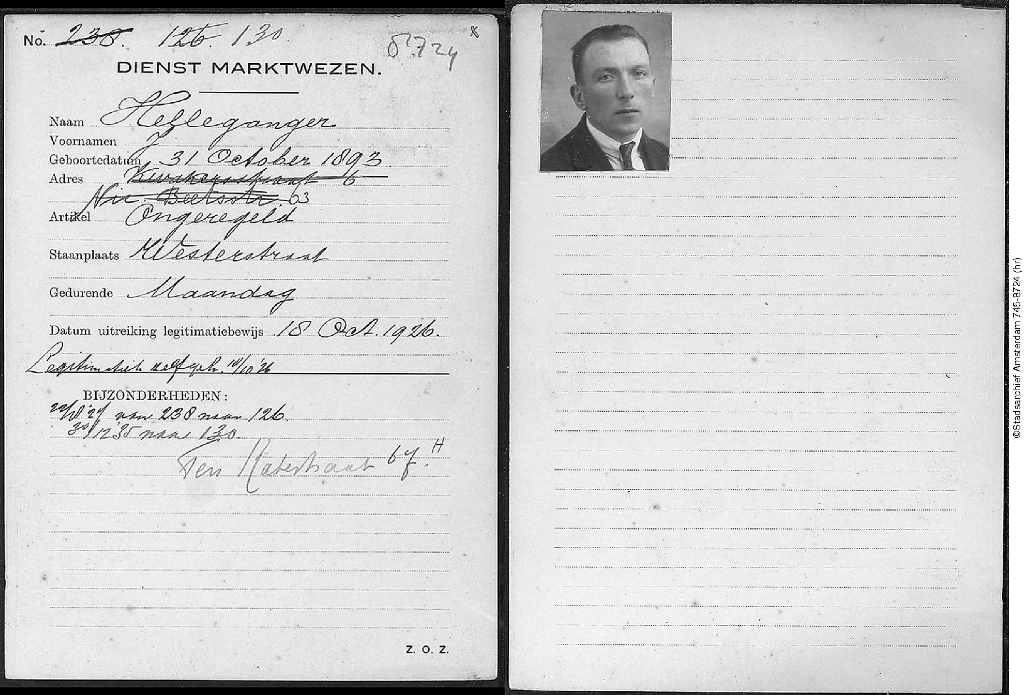 No. 238. 126. 130.
8724
DIENST MARKTWEZEN.
Naam Helleganger
Voornamen J
Geboortedatum 31 October 1893
Adres Kwakersstraat 6
Nic. Beetsstr. 63
Artikel Ongeregeld
Staanplaats Westerstraat
Gedurende Maandag
Datum uitreiking legitimatiebewijs 18 Oct. 1926.
Legitimatieb. afgeh.
BIJZONDERHEDEN:
van 238 naar 126.
30/12 '35 naar 130.
Ten Katestraat 67 H
Z. O. Z.
©Stadsarchief Amsterdam 745-8724 (hr)